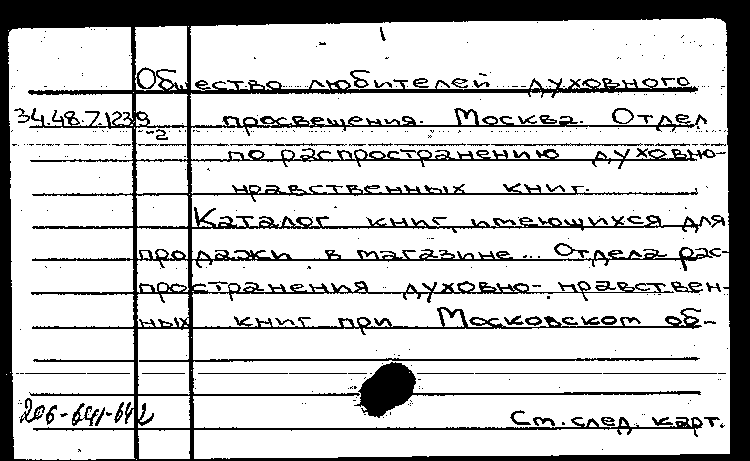 Общество любителей духовного
34.48.7.1239 просвещения. Москва. Отдел
-2 по распространению духовно-
нравственных книг.
Каталог книг, имеющихся для
продажи в магазине... Отдела рас-
пространения духовно-нравствен-
ных книг при Московском об-
206-641-642
См. след. карт.